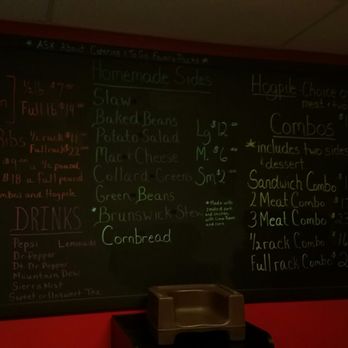 * Ask About Catering & To Go Family Packs *
1/2 lb $7.00
Full lb $14.00
Ribs 1/2 rack $11
Full rack $22
1/2 pound
$18 a full pound
Combos and Hogpile
DRINKS
Pepsi Lemonade
Dr. Pepper
Dt. Dr. Pepper
Mountain Dew
Sierra Mist
Sweet or Unsweet Tea
Homemade Sides
Slaw
Baked Beans
Potato Salad
Mac & Cheese
Collard Greens
Green Beans
* Brunswick Stew
Cornbread
Lg $12.00
M. $6.00
Sm $2.00
* Made with
smoked pork
and chicken
with Lima Beans
and corn
Hogpile - Choice o
meat + two
Combos
* includes two sides
dessert
Sandwich Combo
2 Meat Combo
3 Meat Combo
1/2 rack Combo
Full rack Combo